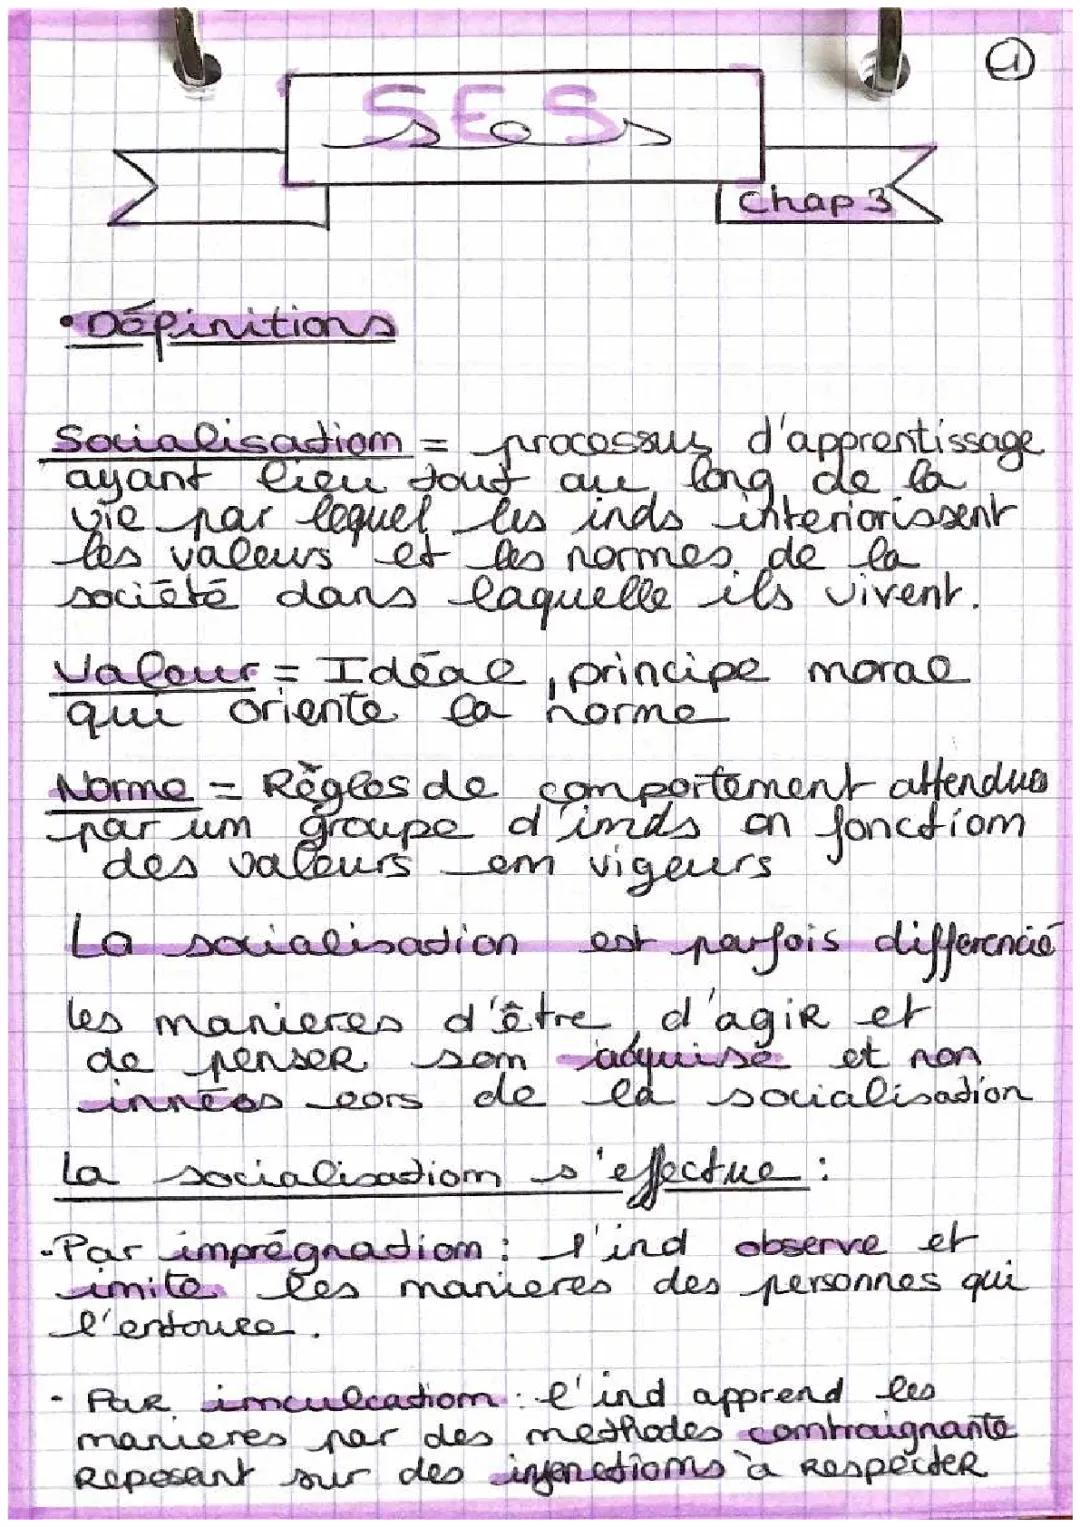 1
SES
ses
Chap 3
• Définitions
Socialisation = processus d'apprentissage
ayant lieu tout au long de la
vie par lequel les inds interiorissent
les valeurs et les normes de la
société dans laquelle ils vivent.
Valeur = Idéal, principe moral
qui oriente la norme
Norme = Règles de comportement attendues
par un groupe d'inds en fonction
des valeurs en vigeurs
La socialisation est parfois differencié
les manieres d'être, d'agir et
de penser son adquise et non
innées lors de la socialisation
La socialisation s'effectue :
- Par imprégnation : l'ind observe et
imite les manieres des personnes qui
l'entoure.
- Par inculcation : l'ind apprend les
manieres par des methodes contraignante
Reposant sur des injonctions à Respecter